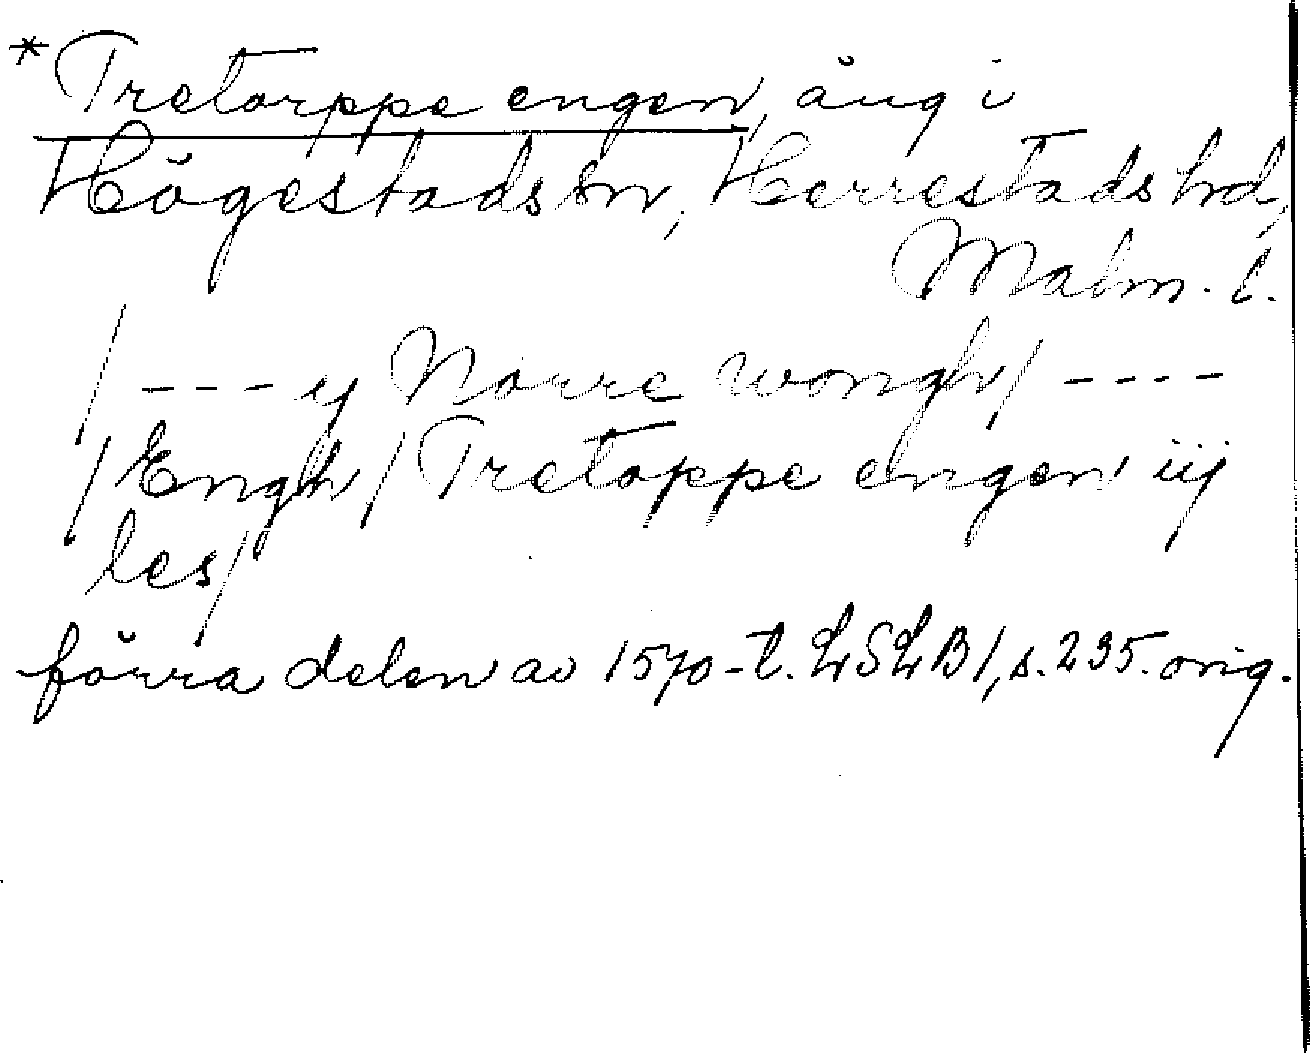 *Tretorppe engen, äng i
Högestads sn, Herrestads hd,
Malm. l.
/ --- y Nørre wongh/ ----
/Engh/ Tretoppe engen iij
les/
förra delen av 1570-t. LSLB1, s. 235. orig.